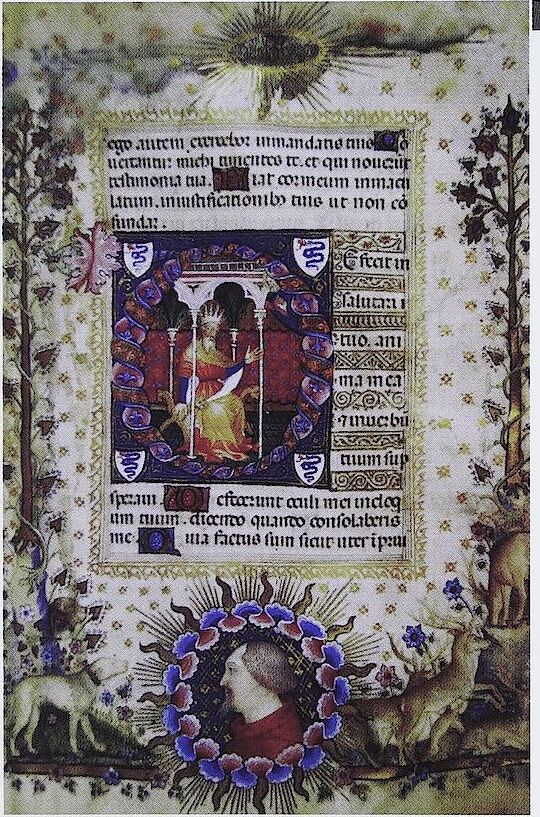 ego autem exercebor inmandatis tuis Co
uertantur michi timentes te. et qui nouerūt
testimonia tua. Fiat cor meum inmacu
latum. iniustificationib; tuis ut non cō
fundar.
Efecit in
salutari
tuo. ani
ma mea
⁊ inuerbū
tuum sup
speraui. Defecerunt oculi mei ineloq
um tuum. dicentes quando consolaberis
me. Quia factus sum sicut uter ī prui